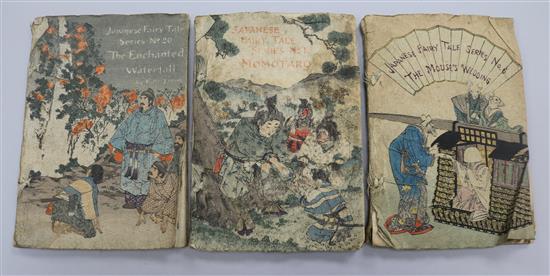 Japanese Fairy Tale
Series No. 20
The Enchanted
Waterfall
JAPANESE
FAIRY TALE
SERIES No. 1.
MOMOTARO
JAPANESE FAIRY TALE SERIES No. 6
THE MOUSE'S WEDDING